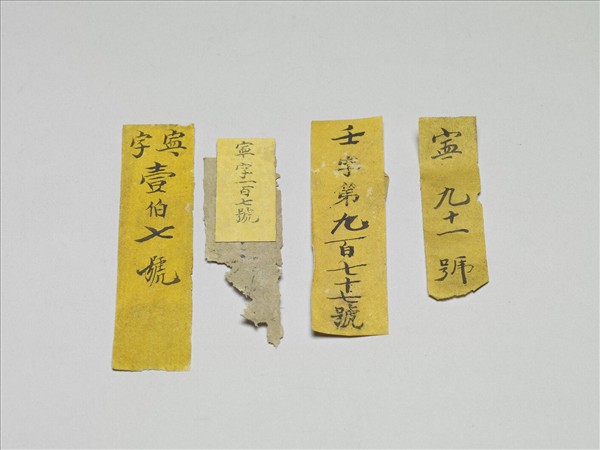 寧字壹伯七號
寧字一百七號
壬字第九百七十七號
寧九十一號